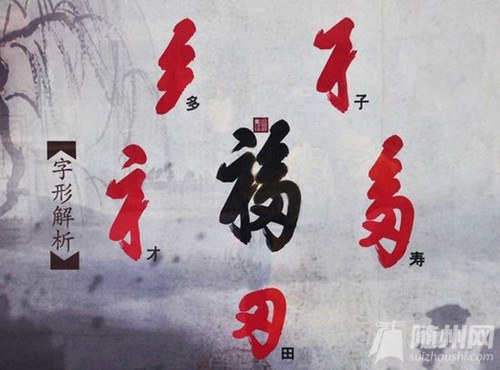 多
子
字形解析
福
才
寿
田
随州网
suizhoushi.com